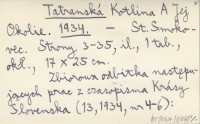 Tatranská Kotlina A Jej
Okolie. 1934. — St. Smoko-
vec. Strony 3-35, il., 1 tab.,
okł., 17 x 25 cm.
Zbiorowa odbitka następu-
jących prac z czasopisma Krásy
Slovenska (13, 1934, nr 4-6):